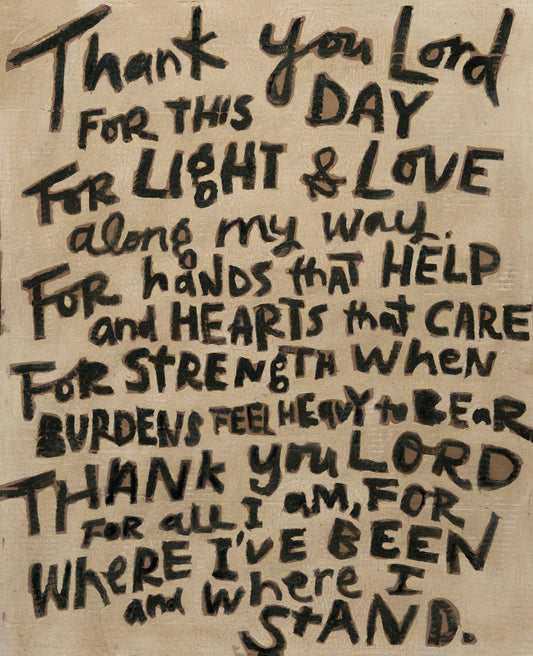 Thank you Lord
FOR THIS DAY
FOR LIGHT & LOVE
along my way.
FOR hANDS thAT HELP
and HEARTS that CARE
FOR StRENgTH WheN
BURDENS FEEL HEavY to BEaR
THANK you LORD
FOR all I am, FOR
WheRE I'VE BEEN
and where I
StAND.